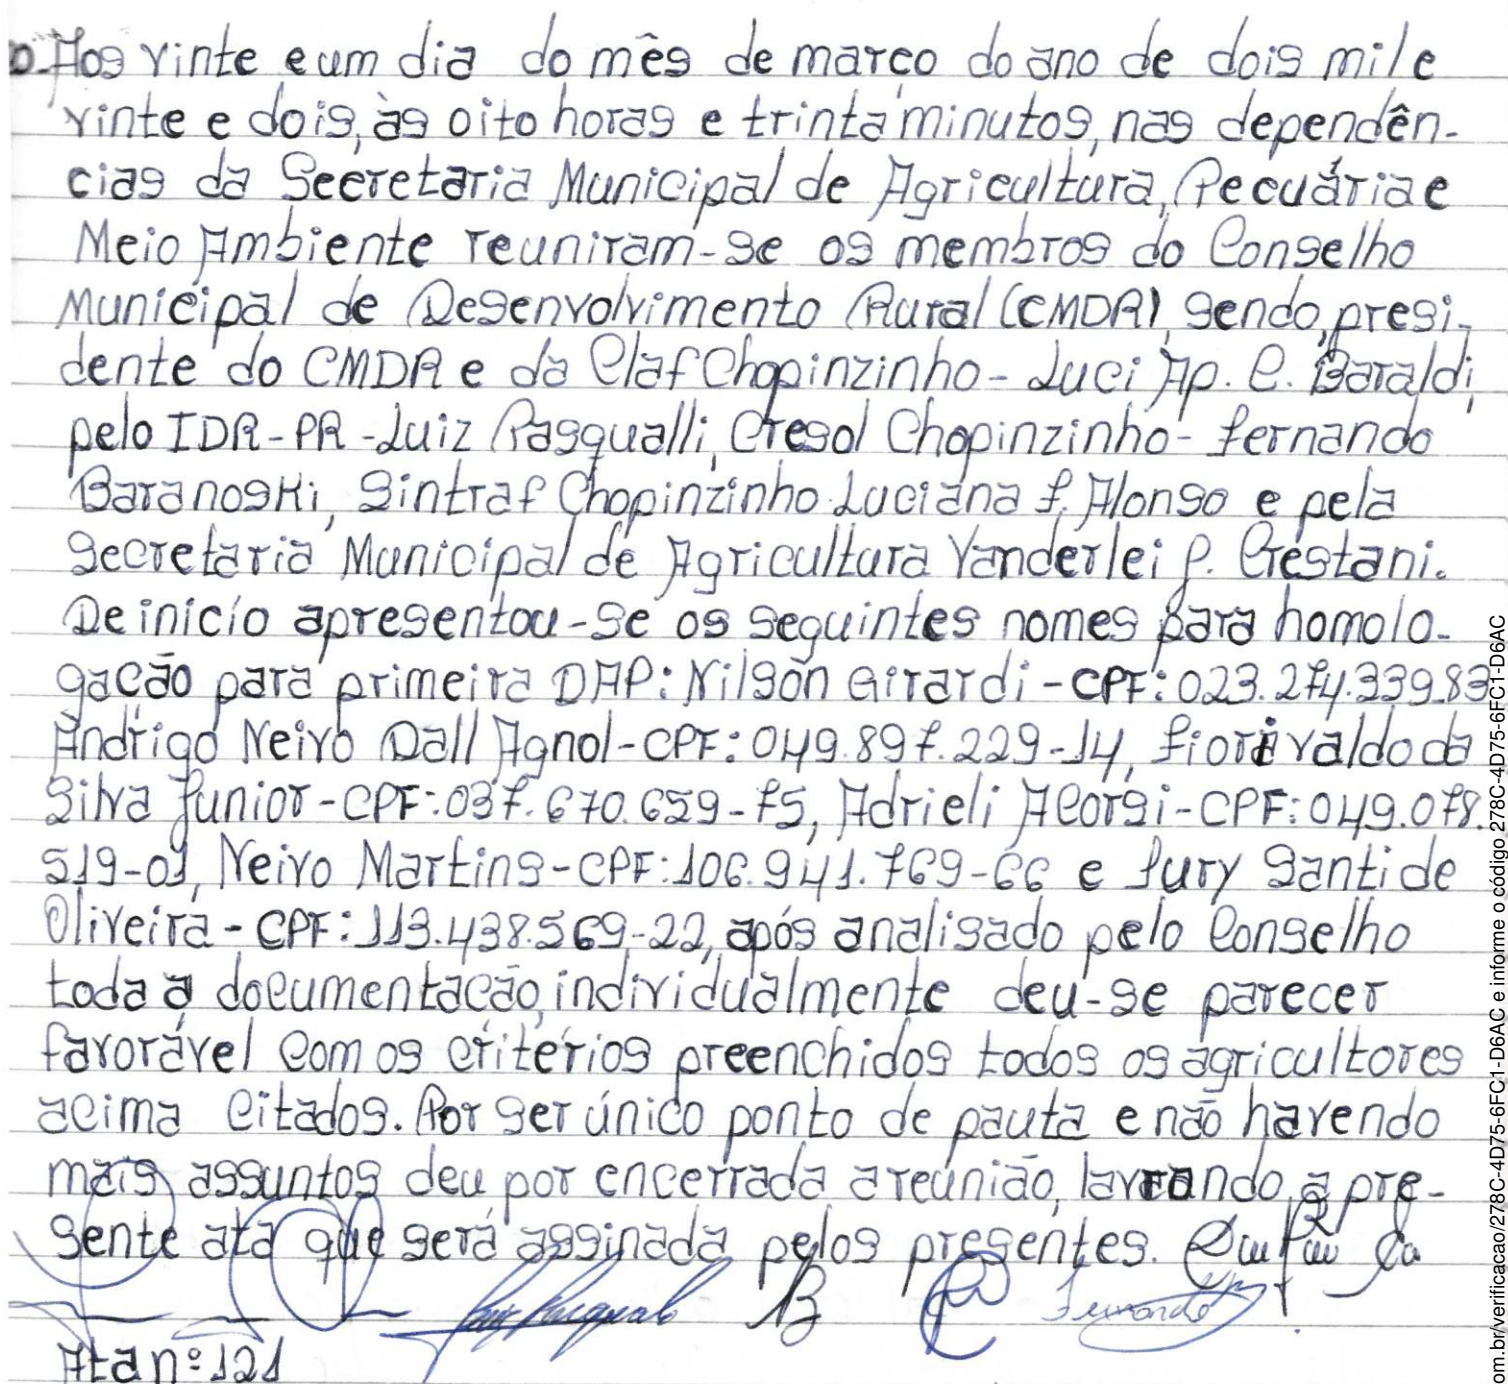 Aos vinte e um dia do mês de março do ano de dois mil e
vinte e dois, às oito horas e trinta minutos, nas dependên-
cias da Secretaria Municipal de Agricultura, Pecuária e
Meio Ambiente reuniram-se os membros do Conselho
Municipal de Desenvolvimento Rural (CMDR), sendo, presi-
dente do CMDR e da Claf Chopinzinho - Luci Ap. C. Baraldi,
pelo IDR-PR - Luiz Pasqualli, Cresol Chopinzinho - Fernando
Baranoski, Sintraf Chopinzinho Luciana F. Alonso e pela
Secretaria Municipal de Agricultura Vanderlei P. Crestani.
De início apresentou-se os seguintes nomes para homolo-
gação para primeira DAP: Nilson Girardi - CPF: 023.274.339.83
Andrigo Neivo Dall Agnol - CPF: 049.897.229-14, Fiorivaldo da
Silva Junior - CPF: 037.670.659-75, Adrieli Acorsi - CPF: 049.078.
519-01, Neivo Martins - CPF: 106.941.769-66 e Iury Santi de
Oliveira - CPF: 113.438.569-22, após analisado pelo Conselho
toda a documentação, individualmente deu-se parecer
favorável com os critérios preenchidos todos os agricultores
acima citados. Por ser único ponto de pauta e não havendo
mais assuntos deu por encerrada a reunião, lavrando a pre-
sente ata que será assinada pelos presentes.
Fernando
Ata nº 121
om.br/verificacao/278C-4D75-6FC1-D6AC e informe o código 278C-4D75-6FC1-D6AC